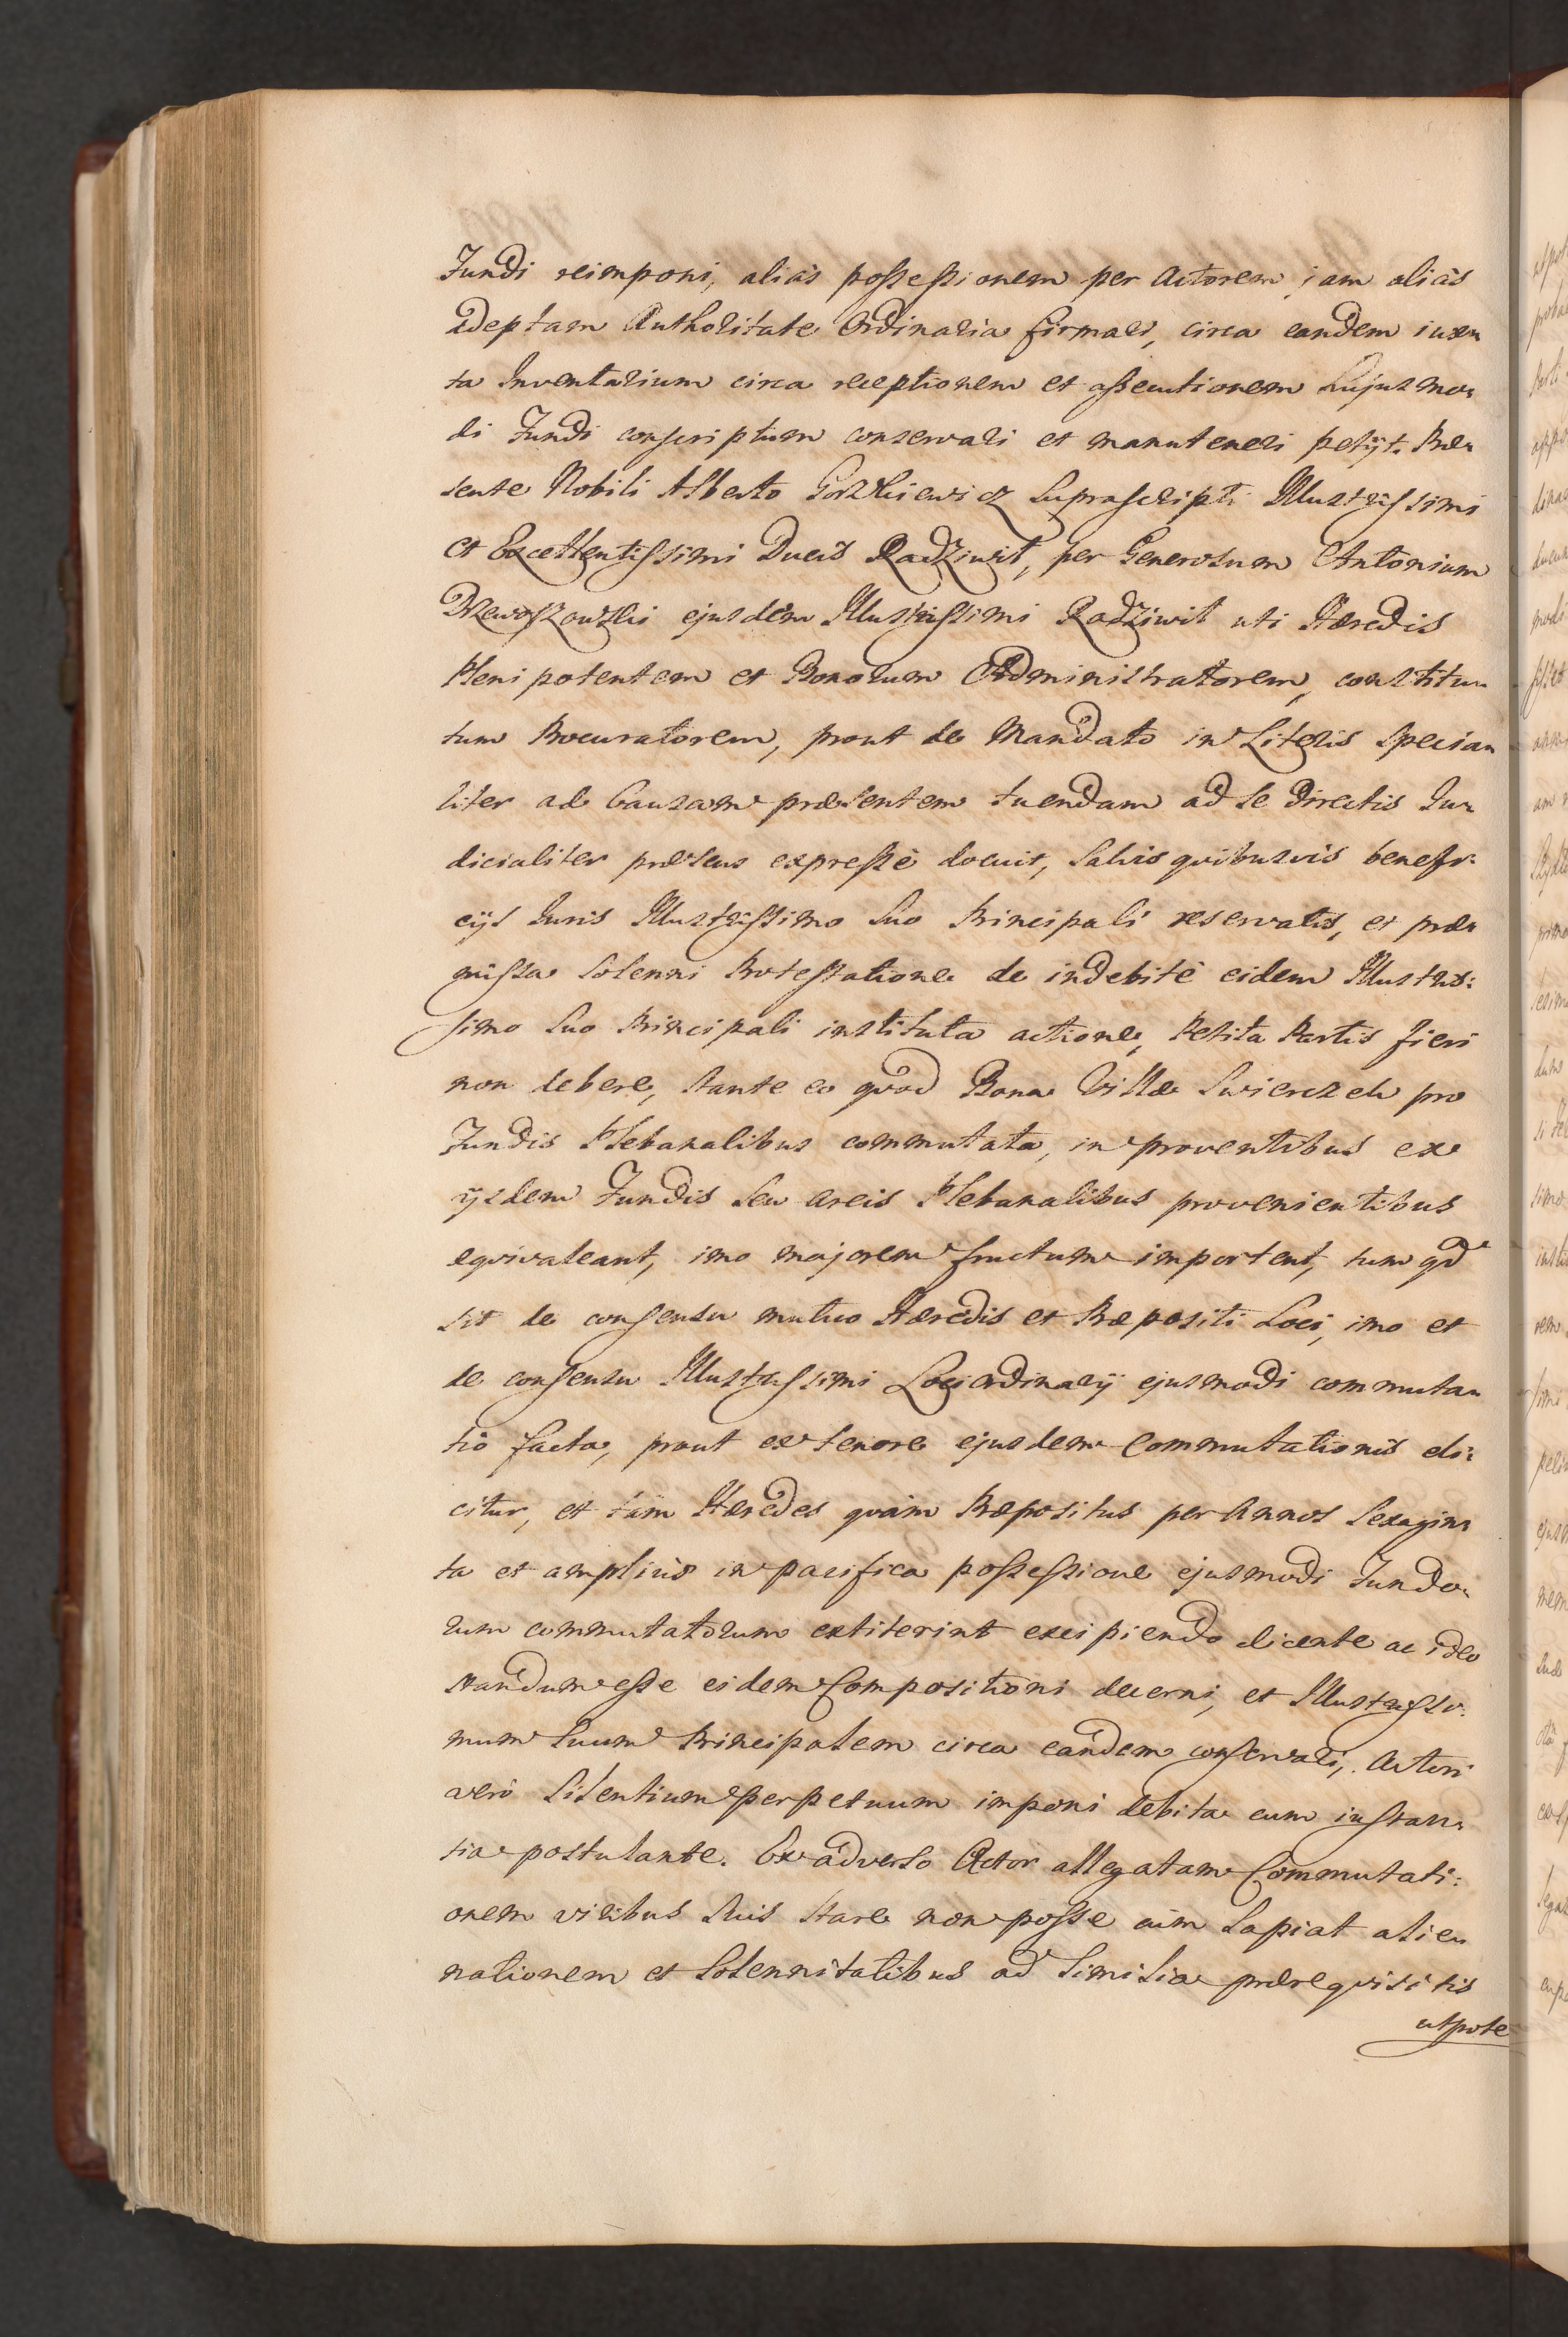 Fundi reimponi, aliàs possessionem per Actorem jam aliàs
adeptam Authoritate Ordinaria firmari, circa eandem iux-
ta Inventarium circa receptionem et assecutionem hujusmo-
di Fundi conscriptum conservari et manuteneri petijt. Præ-
sente Nobili Alberto Gorzkiewicz Suprascripti Illustrissimi
et Excellentissimi Ducis Radziwił, per Generosum Antonium
Drzewoszowski ejusdem Illustrissimi Radziwił uti Hæredis
Plenipotentem et Bonorum Administratorem, constitu-
tum Procuratorem, prout de Mandato in Literis Specia-
liter ad Causam præsentem tuendam ad se directis Ju-
dicialiter præsens expressè docuit, Salvis quibusvis benefi-
cijs Iuris Illustrissimo Suo Principali reservatis, et præ-
missa Solenni Protestatione de indebitè eidem Illustris-
simo Suo Principali instituta actione, Petita Partis fieri
non debere, stante eo quod Bona Villæ Swierczek pro
Fundis Plebanalibus commutata, in proventibus ex
ijsdem Fundis seu areis Plebanalibus provenientibus
equivaleant, imo majorem fructum important, tum qd
sit de consensu mutuo Hæredis et Præpositi Loci, imo et
de consensu Illustrissimi Loci Ordinarij ejusmodi commuta-
tio facta, prout ex tenore ejusdem Commutationis eli-
citur, et tàm Hæredes quàm Præpositus per Annos Sexagin-
ta et ampliùs in pacifica possessione ejusmodi Fundo-
rum commutatorum extiterint excipiendo dicente ac ideo
standum esse eidem Compositioni decerni, et Illustrissi-
mum Suum Principalem circa eandem conservari, Actori
verò Silentium perpetuum imponi debita cum instan-
tia postulante. Ex adverso Actor allegatam Commutati-
onem viribus Suis stare non posse cùm Sapiat alie-
nationem et Solennitatibus ad Similia prærequisitis
utpote